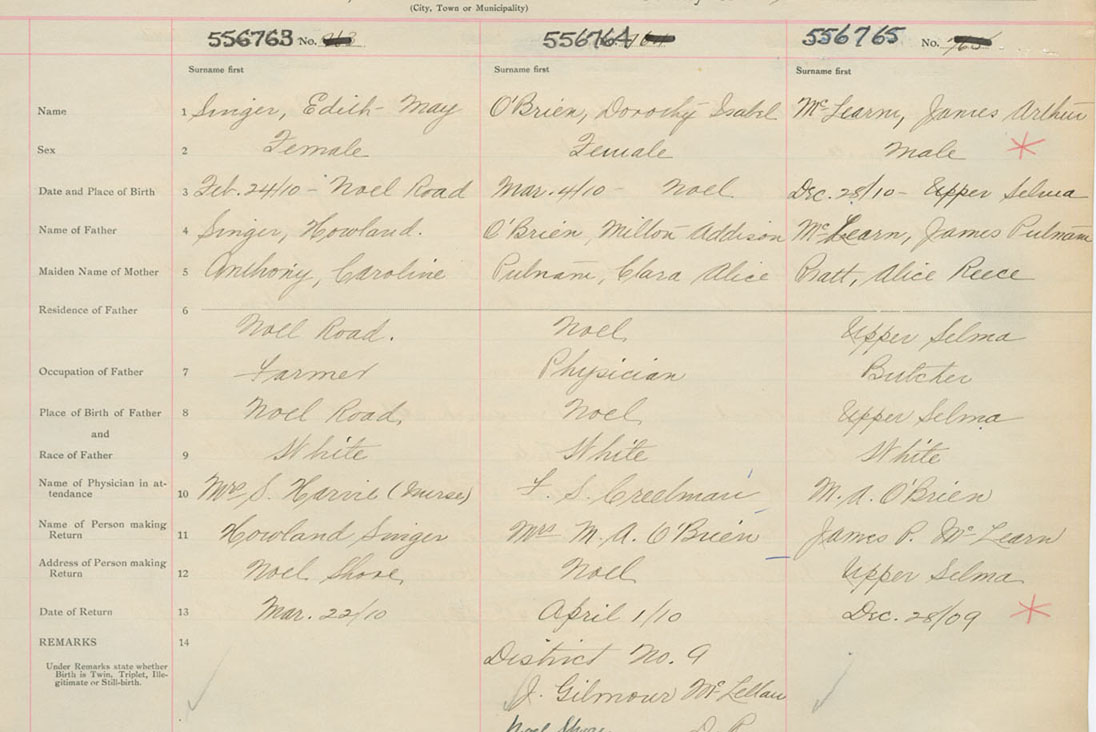 (City, Town or Municipality)
556763 No. 556764 556765 No.
Surname first Surname first Surname first
Name 1 Singer, Edith May O'Brien, Dorothy Isabel McLearn, James Arthur
Sex 2 Female Female Male
Date and Place of Birth 3 Feb. 24/10 - Noel Road Mar. 4/10 - Noel Dec. 28/10 - Upper Selma
Name of Father 4 Singer, Howland. O'Brien, Milton Addison McLearn, James Putnam
Maiden Name of Mother 5 Anthony, Caroline Putnam, Clara Alice Pratt, Alice Reece
Residence of Father 6
Noel Road. Noel Upper Selma
Occupation of Father 7 Farmer Physician Butcher
Place of Birth of Father 8 Noel Road, Noel Upper Selma
and
Race of Father 9 White White White
Name of Physician in at-
tendance 10 Mrs S. Harvie (Nurse) F. S. Creelman M. A. O'Brien
Name of Person making
Return 11 Howland Singer Mrs M. A. O'Brien James P. McLearn
Address of Person making
Return 12 Noel Shore, Noel Upper Selma
Date of Return 13 Mar. 22/10 April 1/10 Dec. 28/09
REMARKS 14
Under Remarks state whether
Birth is Twin, Triplet, Ille-
gitimate or Still-birth.
District No. 9
J. Gilmour McLellan
Noel Shore